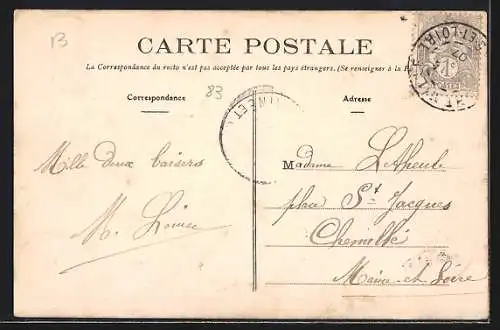 13
CARTE POSTALE
La Correspondance du recto n'est pas acceptée par tous les pays étrangers. (Se renseigner à la
Correspondance
83
Adresse
Mille doux baisers
Madame
place St Jacques
Chemillé
Maine-et-Loire
ET-LOIRE
1c